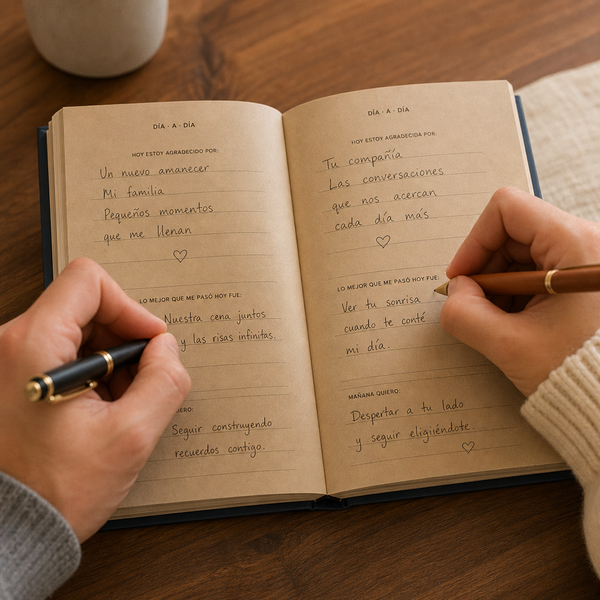 DÍA · A · DÍA
HOY ESTOY AGRADECIDO POR:
Un nuevo amanecer
Mi familia
Pequeños momentos
que me llenan
LO MEJOR QUE ME PASÓ HOY FUE:
Nuestra cena juntos
y las risas infinitas.
Seguir construyendo
recuerdos contigo.
DÍA · A · DÍA
HOY ESTOY AGRADECIDA POR:
Tu compañía
Las conversaciones
que nos acercan
cada día más
LO MEJOR QUE ME PASÓ HOY FUE:
Ver tu sonrisa
cuando te conté
mi día.
MAÑANA QUIERO:
Despertar a tu lado
y seguir eligiéndote.